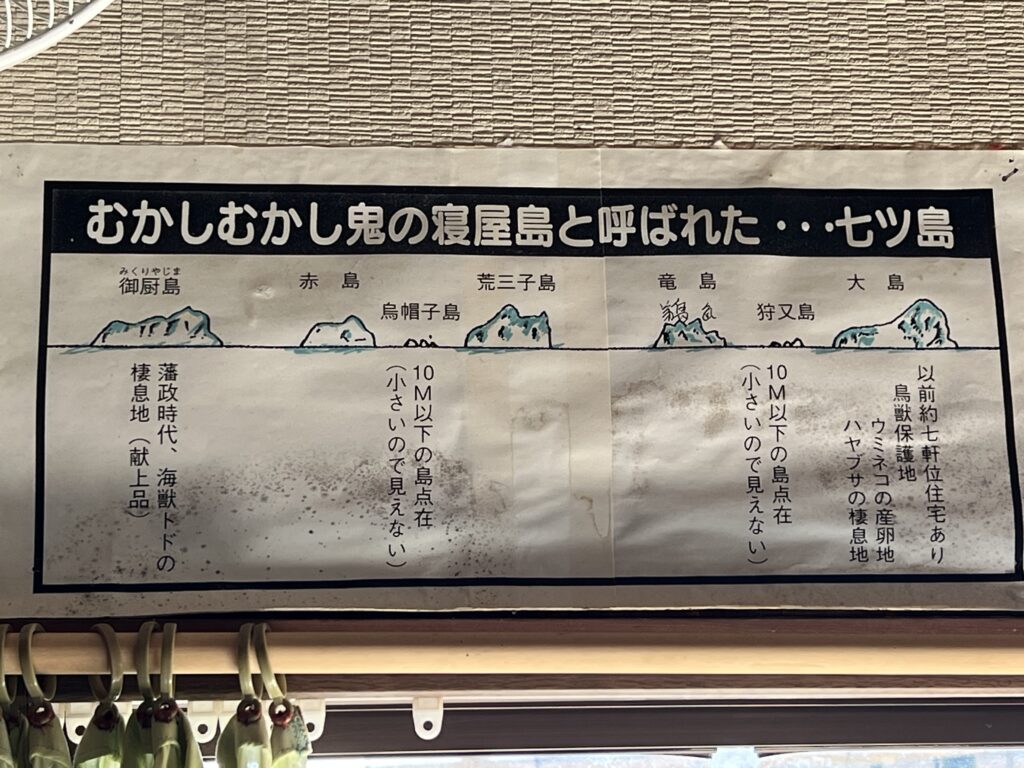 むかしむかし鬼の寝屋島と呼ばれた・・・七ツ島
みくりやじま
御厨島
赤島
烏帽子島
荒三子島
竜島
狩又島
大島
藩政時代、海獣トドの
棲息地(献上品)
10M以下の島点在
(小さいので見えない)
10M以下の島点在
(小さいので見えない)
以前約七軒位住宅あり
鳥獣保護地
ウミネコの産卵地
ハヤブサの棲息地